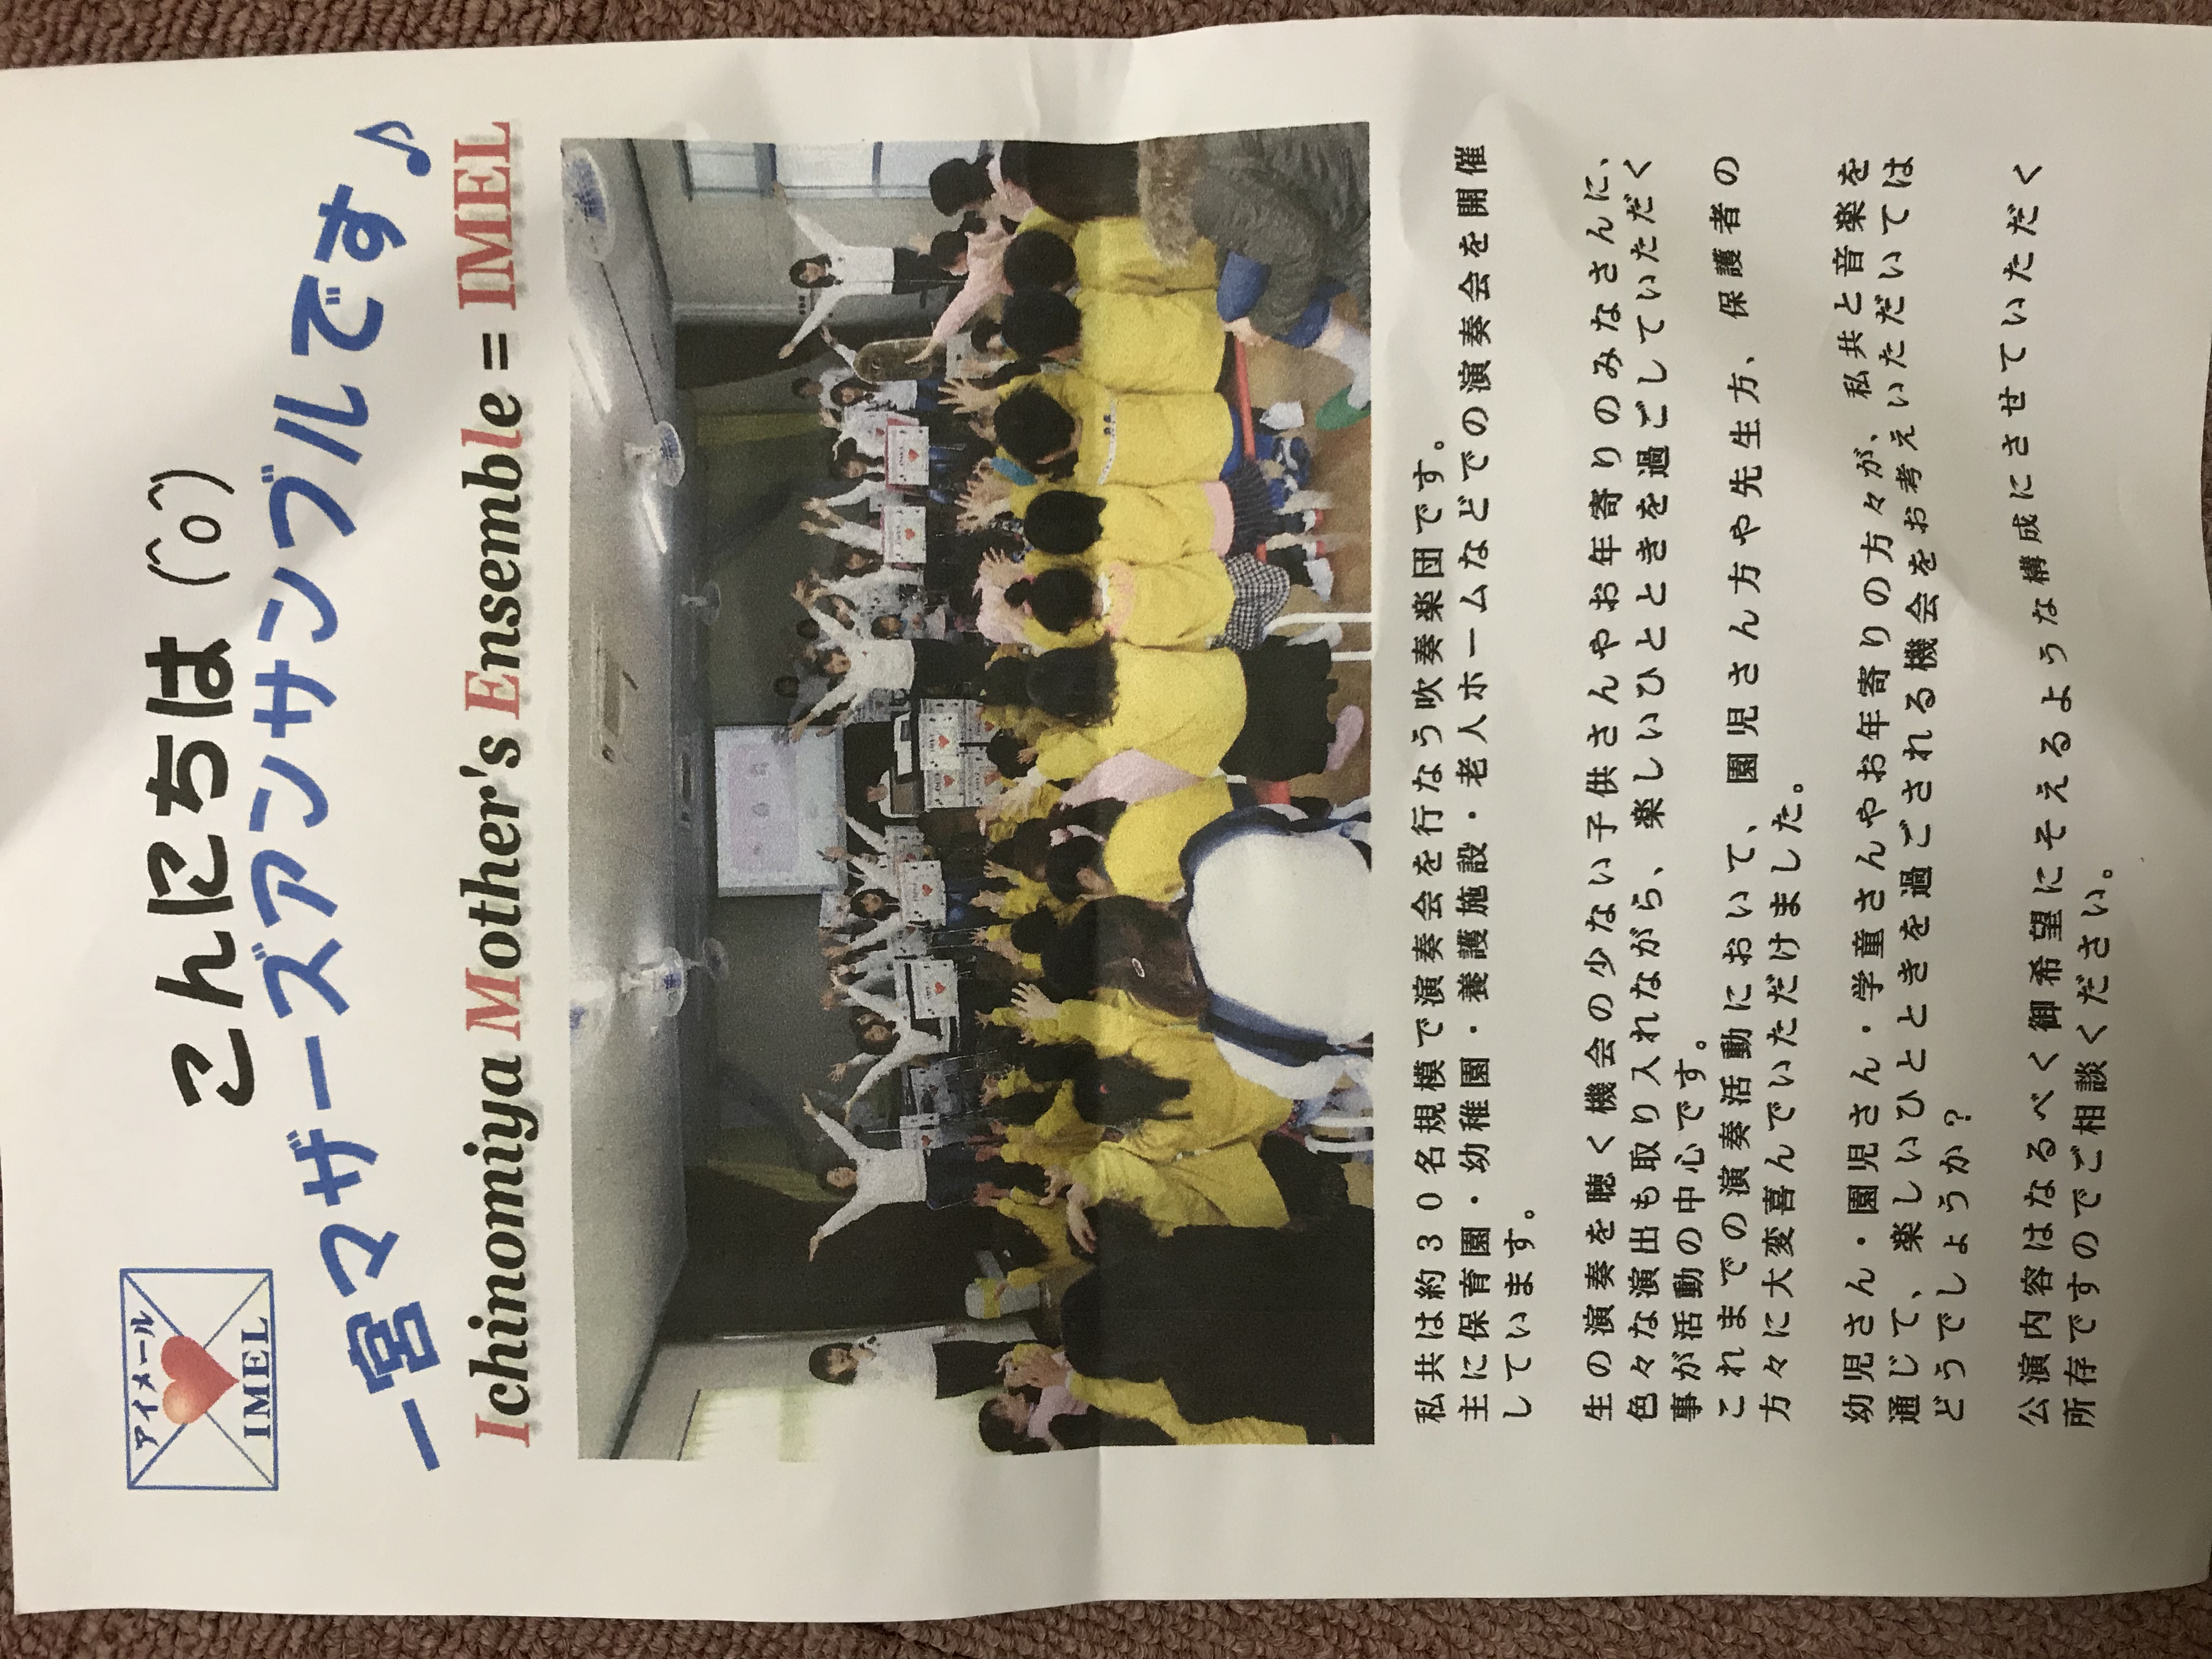 アイメール
IMEL
こんにちは (^o^)
一宮マザーズアンサンブルです♪
Ichinomiya Mother's Ensemble = IMEL
私共は約３０名規模で演奏会を行なう吹奏楽団です。
主に保育園・幼稚園・養護施設・老人ホームなどでの演奏会を開催
しています。
生の演奏を聴く機会の少ない子供さんやお年寄りのみなさんに、
色々な演出も取り入れながら、楽しいひとときを過ごしていただく
事が活動の中心です。
これまでの演奏活動において、園児さん方や先生方、保護者の
方々に大変喜んでいただけました。
幼児さん・園児さん・学童さんやお年寄りの方々が、私共と音楽を
通じて、楽しいひとときを過ごされる機会をお考えいただいては
どうでしょうか？
公演内容はなるべく御希望にそえるような構成にさせていただく
所存ですのでご相談ください。